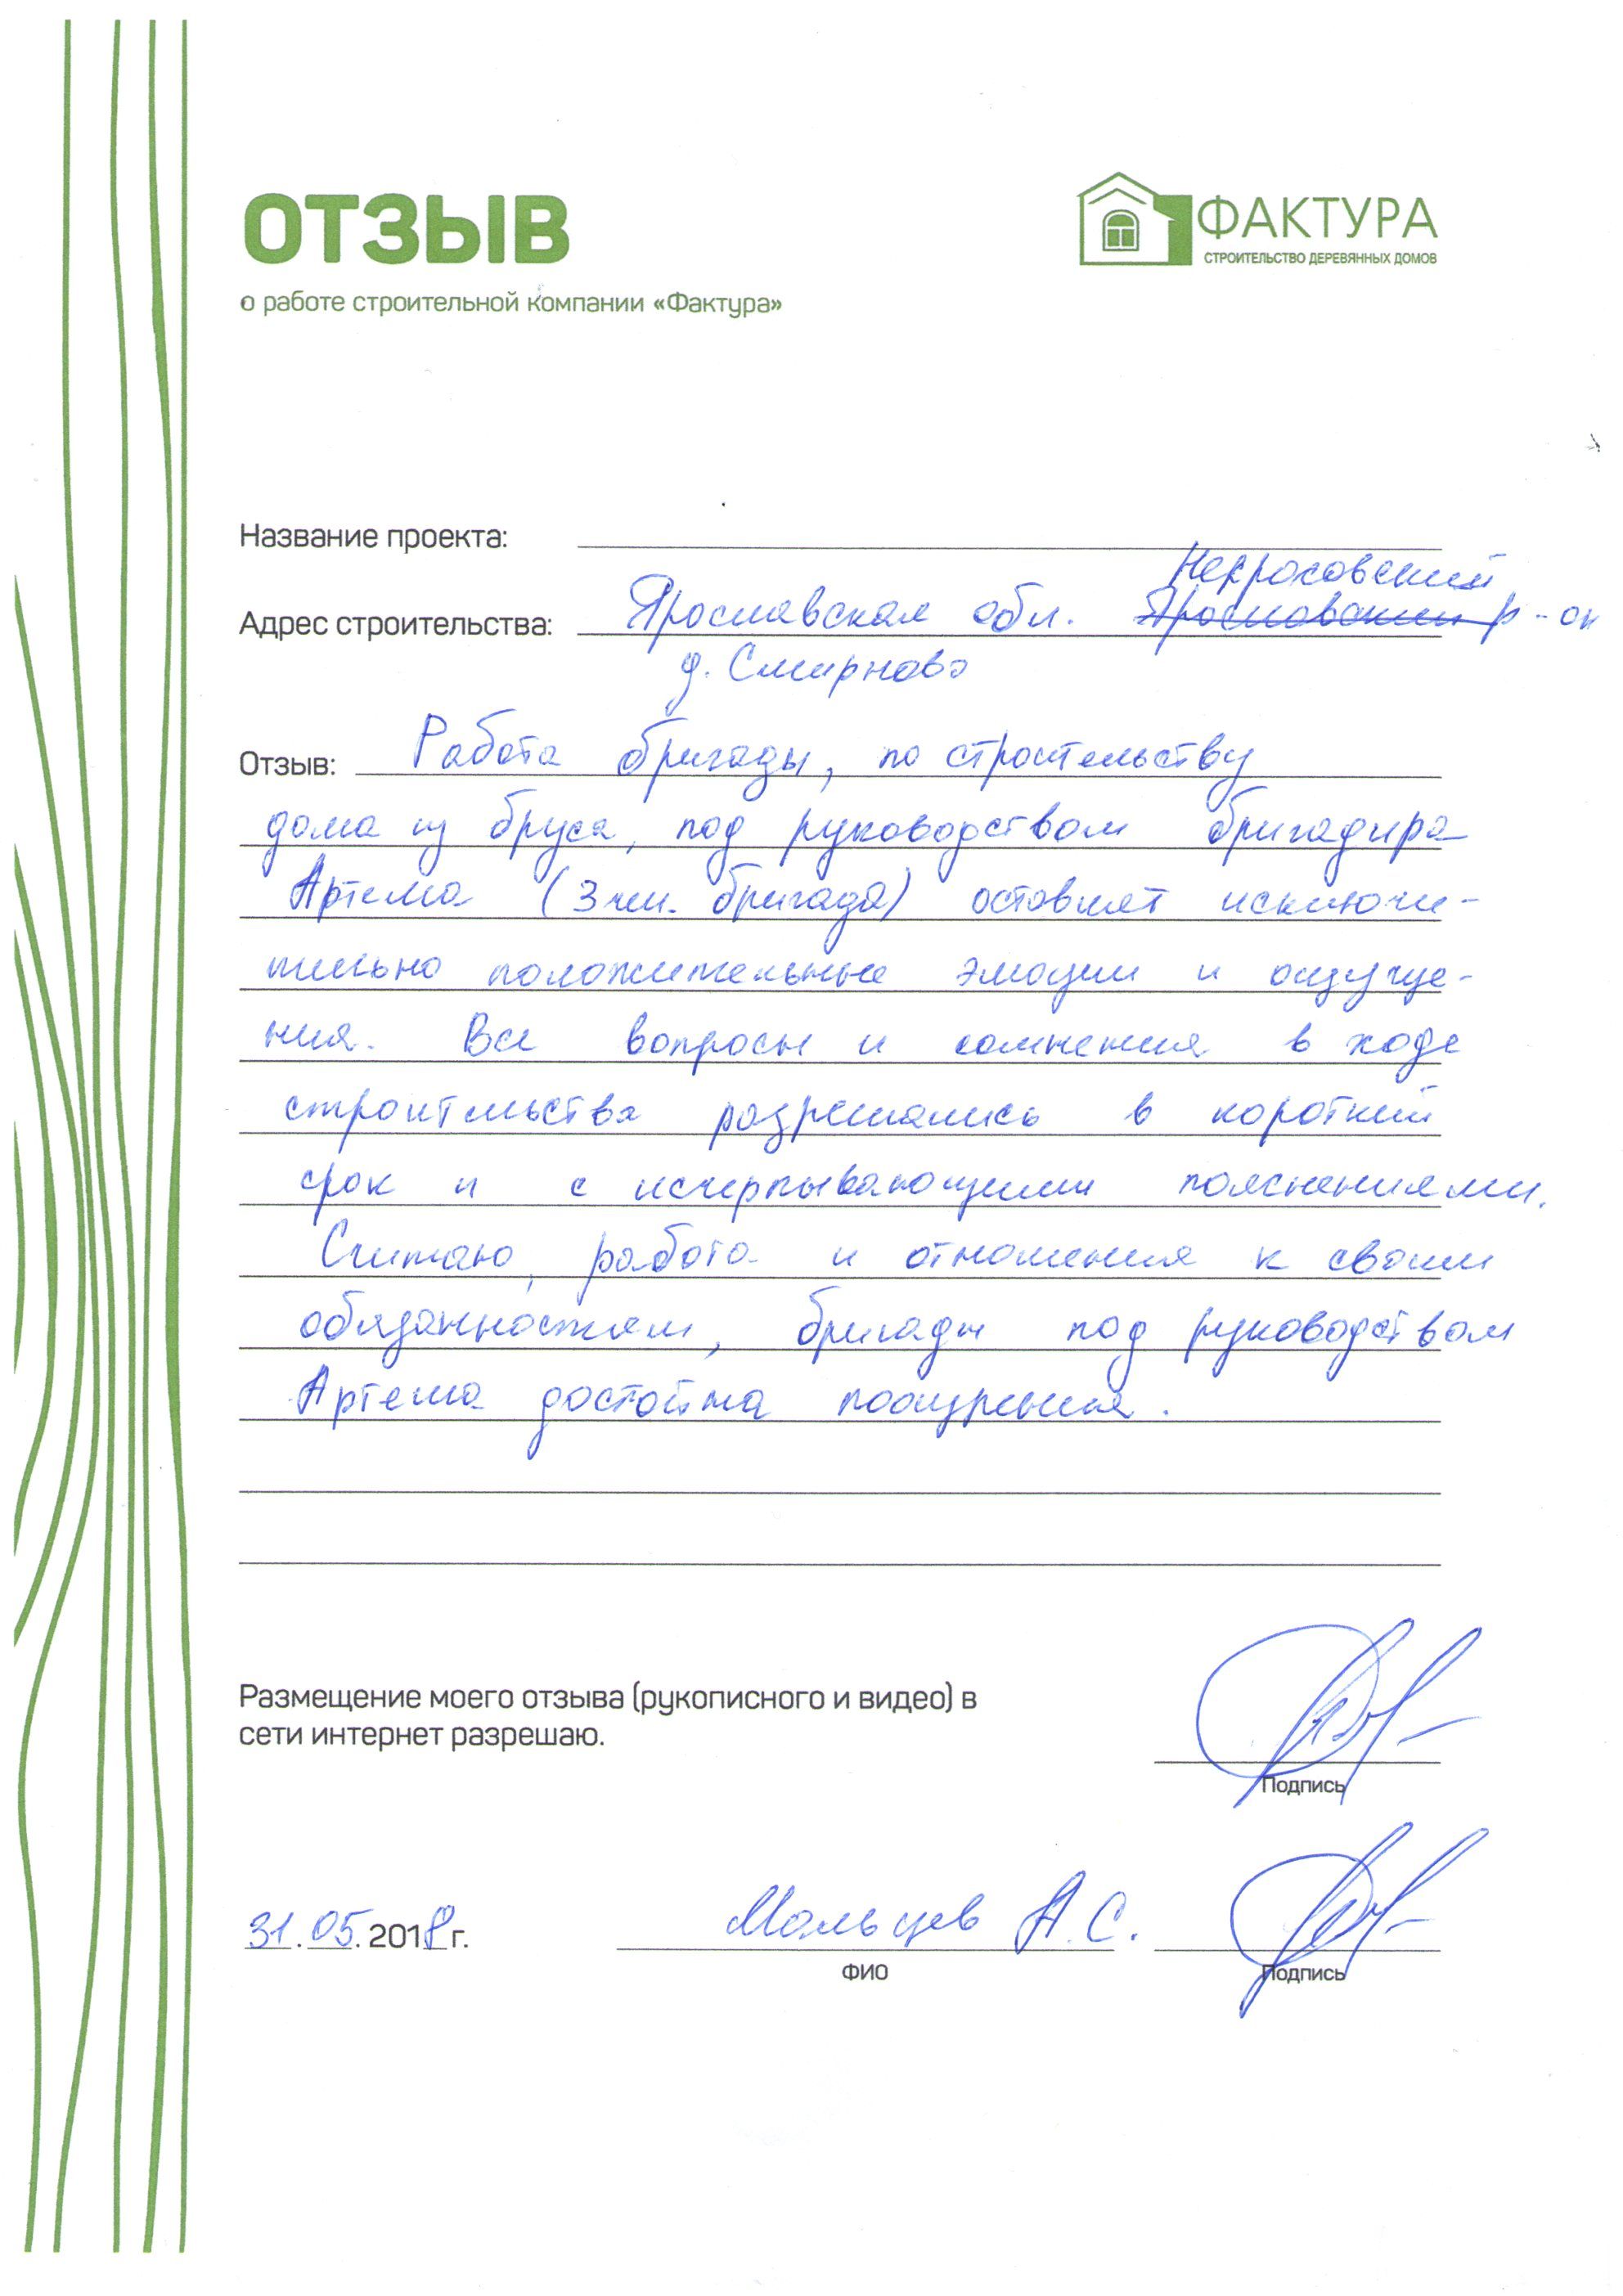 ОТЗЫВ
ФАКТУРА
СТРОИТЕЛЬСТВО ДЕРЕВЯННЫХ ДОМОВ
о работе строительной компании «Фактура»
Название проекта:
Некрасовский
Адрес строительства: Ярославская обл. Ярославский р-он
д. Смирново
Отзыв: Работа бригады, по строительству
дома из бруса, под руководством бригадира
Артема (3 чел. бригада) оставляет исключи-
тельно положительные эмоции и ощуще-
ния. Все вопросы и сомнения в ходе
строительства разрешались в короткий
срок и с исчерпывающими пояснениями.
Считаю, работа и отношения к своим
обязанностям, бригады под руководством
Артема достойна поощрения.
Размещение моего отзыва (рукописного и видео) в
сети интернет разрешаю.
Подпись
31.05.2018 г. Мальцев А.С.
ФИО Подпись